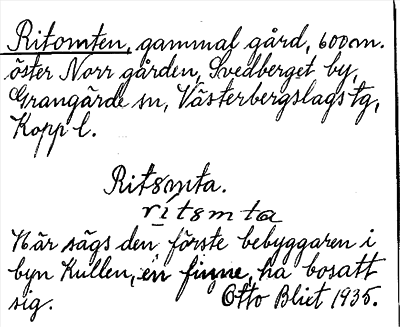 Ritomten, gammal gård, 600 m.
öster Norr gården, Svedberget by,
Grangärde sn, Västerbergslags tg,
Kopp l.
Ritsmta.
rítsmta
Här sägs den förste bebyggaren i
byn Kullen, en finne, ha bosatt
sig. Otto Blixt 1935.